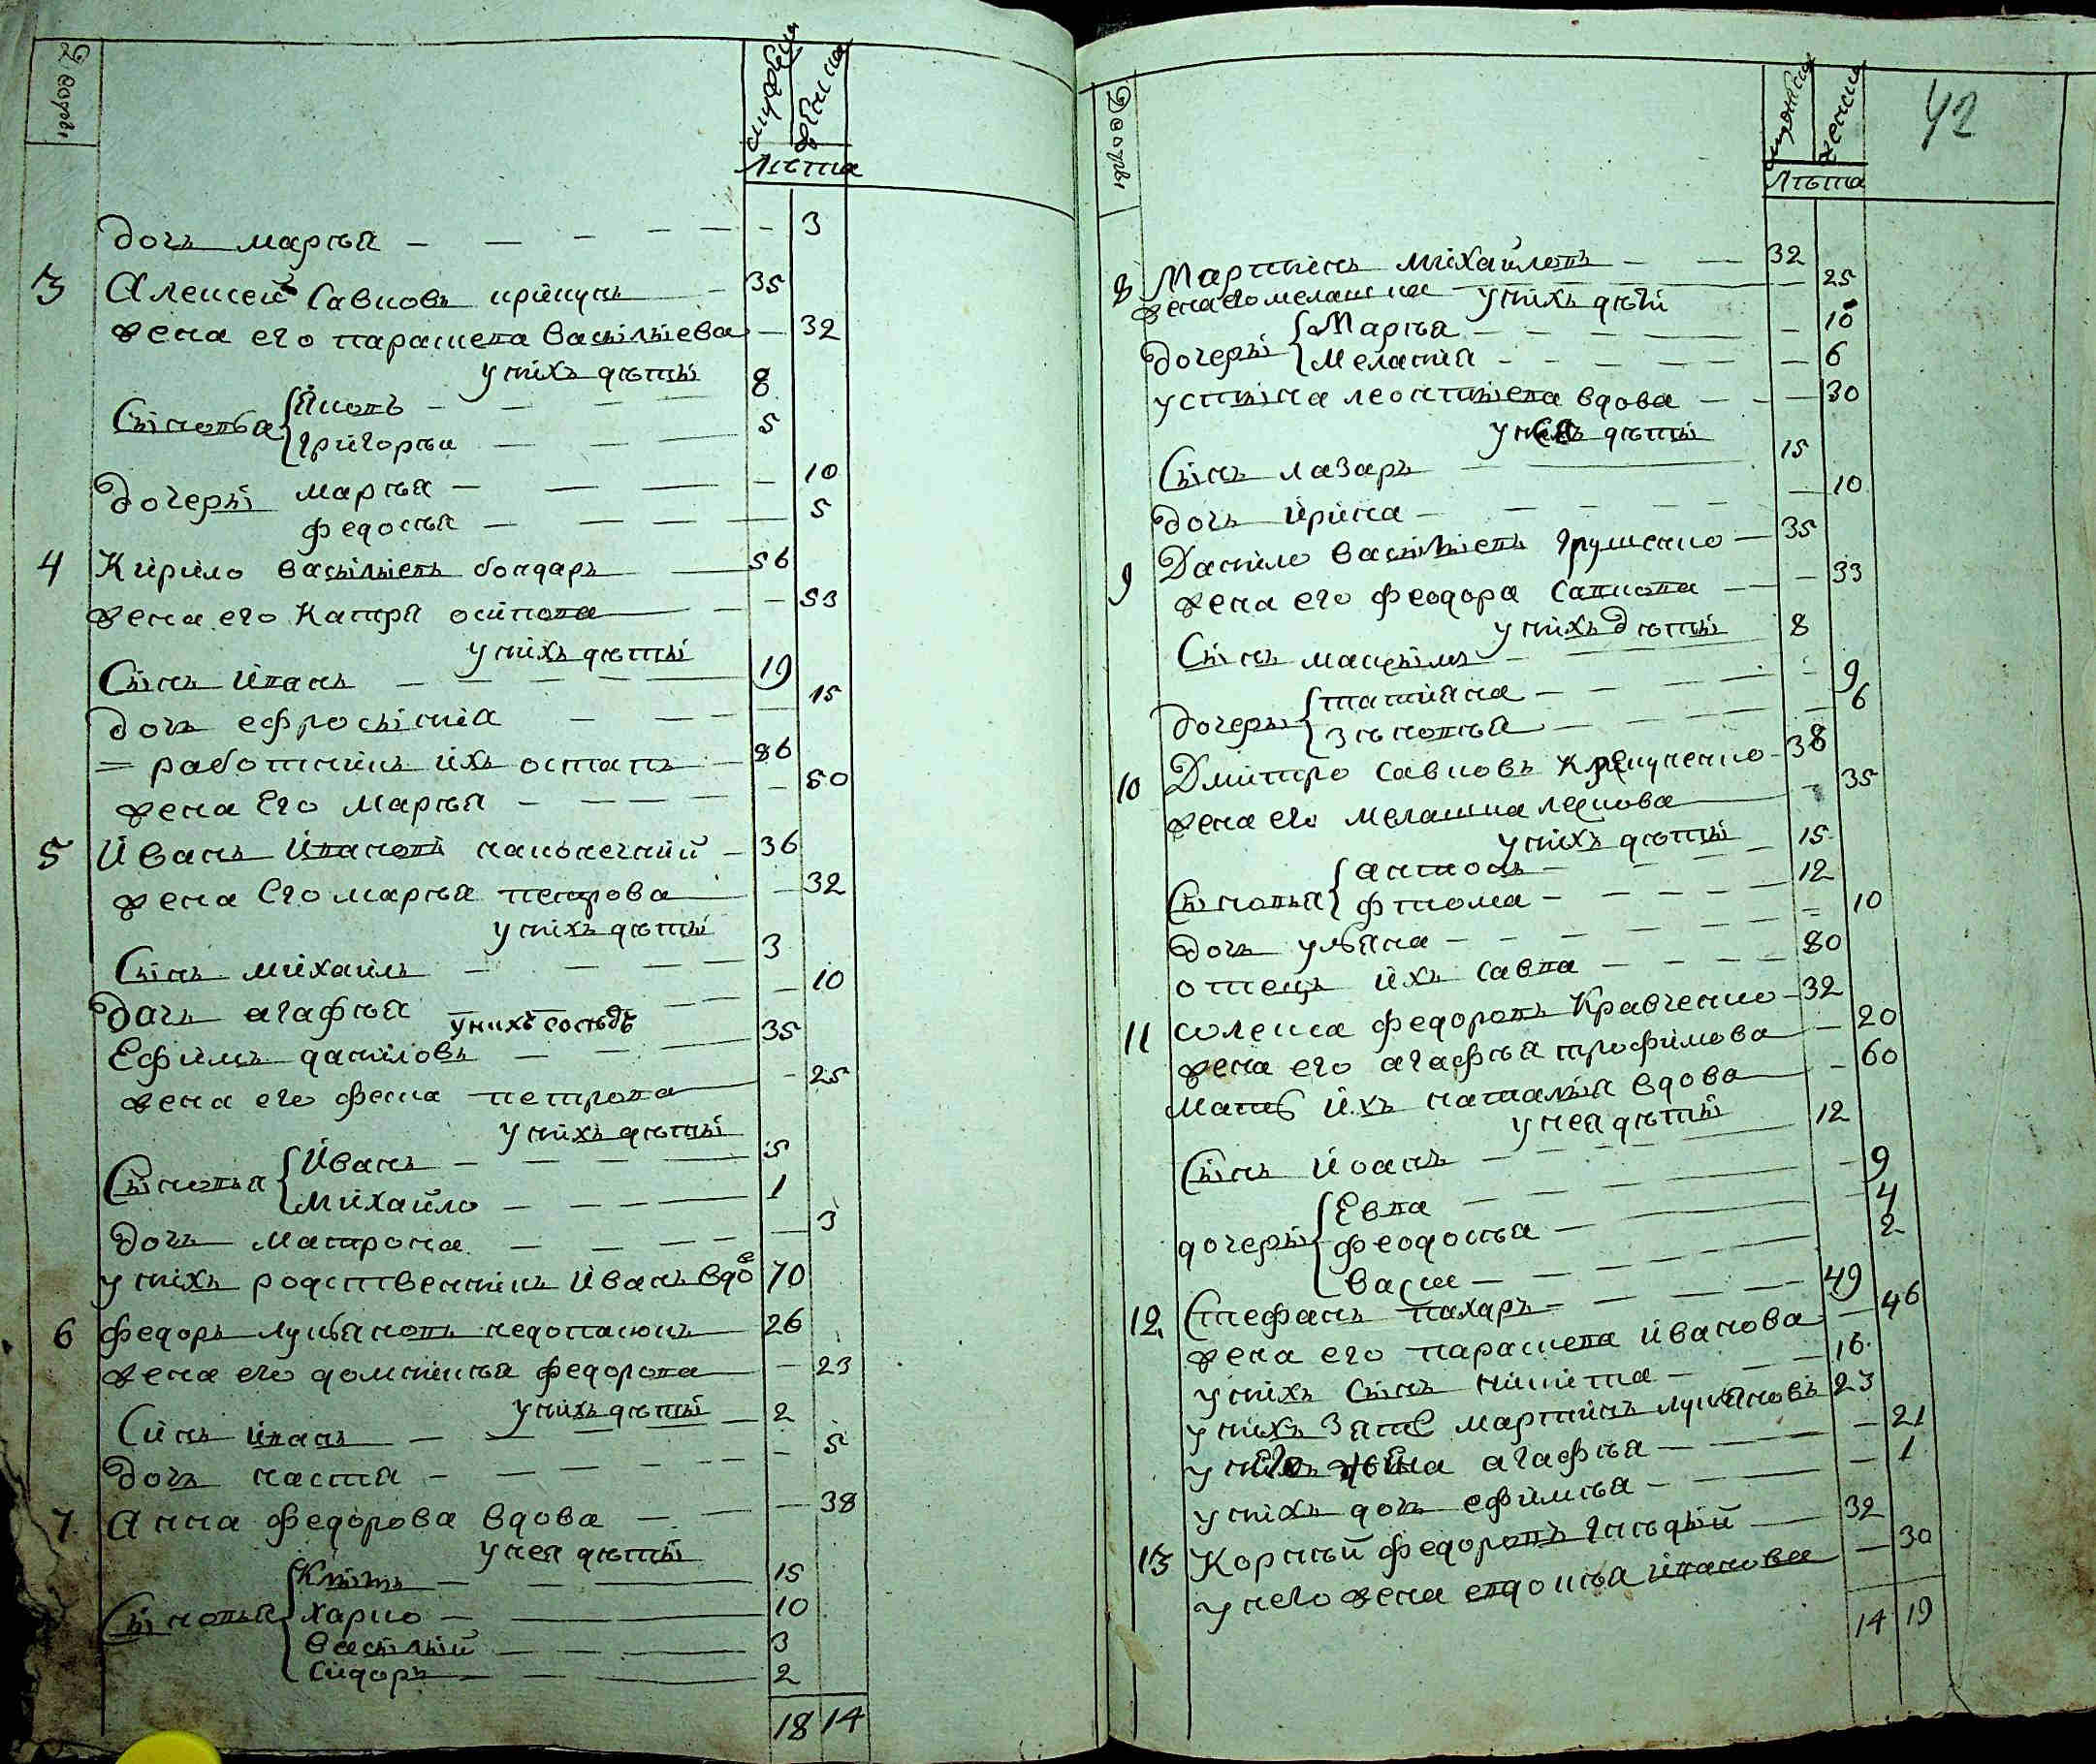 Дворы
мужеска
женска
лѣта
дочь марѳа — 3
3 Алексей Савковъ крикунъ — 35
жена его параскева василиева — 32
у нихъ дѣты
Сынова Яковъ — 8
григорѣи — 5
дочеры марѳа — 10
федосѣя — 5
4 Кирило василиевъ бондарь — 56
жена его Катря осипова — 53
у нихъ дѣты
Сынъ иванъ — 19
дочь ефросыния — 15
= работникъ ихъ остапъ — 86
жена Его марѳа — 50
5 Иванъ Ивановъ наконечний — 36
жена Его марѳа петрова — 32
у нихъ дѣты
Сынъ михаилъ — 3
дочь агафѣя — 10
у нихъ сосѣдъ
Ефимъ даниловъ — 35
жена его феска петрова — 25
у нихъ дѣты
Сыновья Иванъ — 5
михайло — 1
дочь матрона — 3
у нихъ родственникъ Иванъ вдо — 70
6 федоръ лукьяновъ недопаюкъ — 26
жена его домникѣя федорова — 23
у нихъ дѣты
Синъ иванъ — 2
дочь настя — 5
7 Анна федорова вдова — 38
у нея дѣты
Сыновья — 15
харко — 10
василый — 3
сидоръ — 2
18 14
Дворы
мужеска
женска
лѣта
42
8 Мартинъ михайловъ — 32
жена его меланка — 25
у нихъ дѣти
дочеры Марѳа — 10
мелания — 6
устина леонтиева вдова — 30
у нея дѣты
Сынъ лазарь — 15
дочь ирина — 10
9 Данило василиевъ грушенко — 35
жена его феодора савкова — 33
у нихъ дѣты
Сынъ максымъ — 8
дочеры татияна — 9
зѣновѣя — 6
10 Дмитро савковъ Крикуненко — 38
жена его мелашка лескова — 35
у нихъ дѣты
Сыновья антонъ — 15
фтома — 12
дочь ульяна — 10
отецъ ихъ савва — 80
11 олекса федоровъ Кравченко — 32
жена его агафѣя трофимова — 20
мать ихъ наталия вдова — 60
у нея дѣты
Сынъ Иоанъ — 12
дочеры Евва — 9
феодосѣя — 4
васса — 2
12 Стефанъ пахарь — 49
жена его параскева иванова — 46
у нихъ сынъ никита — 16
у нихъ зять мартинъ лукяновъ 23
Его жена агафѣя — 21
у нихъ дочь ефимѣя — 1
13 Корнѣй федоровъ гнѣдый — 32
у него жена евдокѣя иванова — 30
14 19